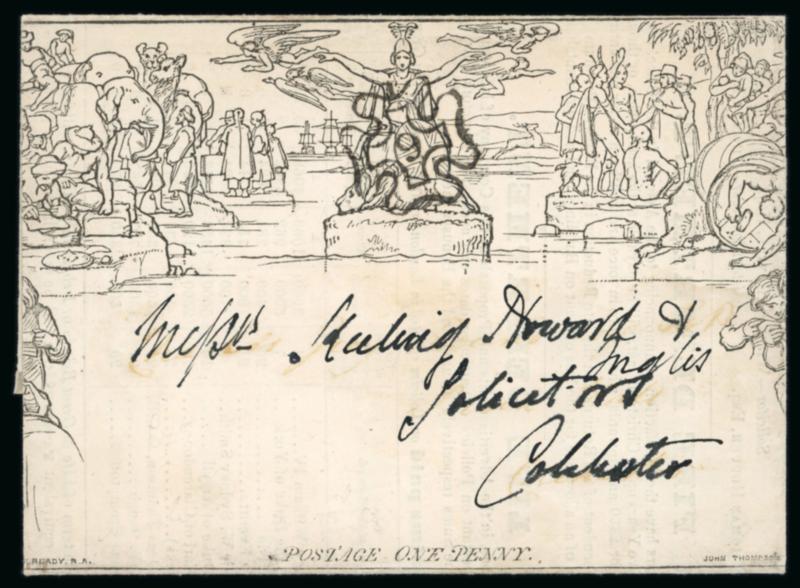 9
Messrs Keeling Howard &
Inglis
Solicitors
Colchester
POSTAGE ONE PENNY.
READY, R.A.
JOHN THOMPSON